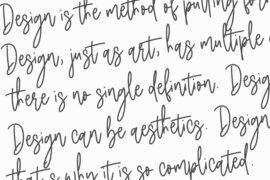 Design is the method of putting
Design, just as art, has multiple
there is no single definition. Design
Design can be aesthetics. Design
that's why it is so complicated.